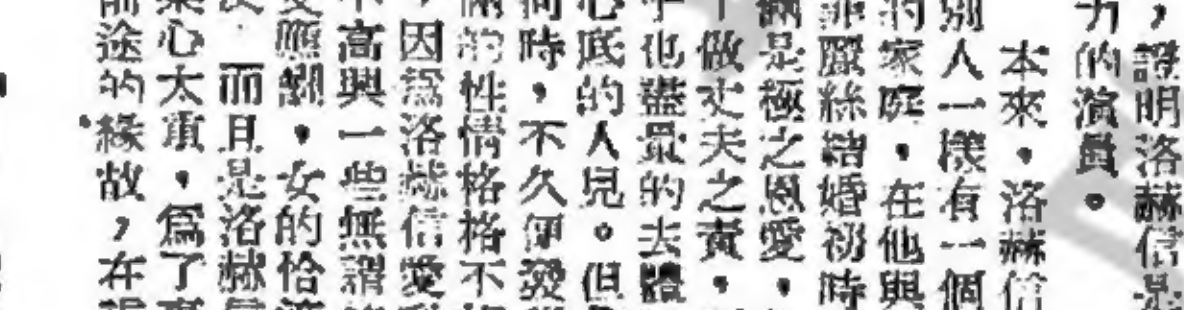 ，證明洛赫信是
力的演員。
本來，洛赫信
別人一樣有一個
的家庭，在他與
菲麗絲結婚初時
倆是極之恩愛，
做丈夫之責，
乎也盡量的去體
心底的人兒。但
何時，不久便發
倆的性情格格不
，因爲洛赫信愛
不高興一些無謂
應酬，女的恰
而且是洛赫信
業心太重，爲了
前途的緣故，在